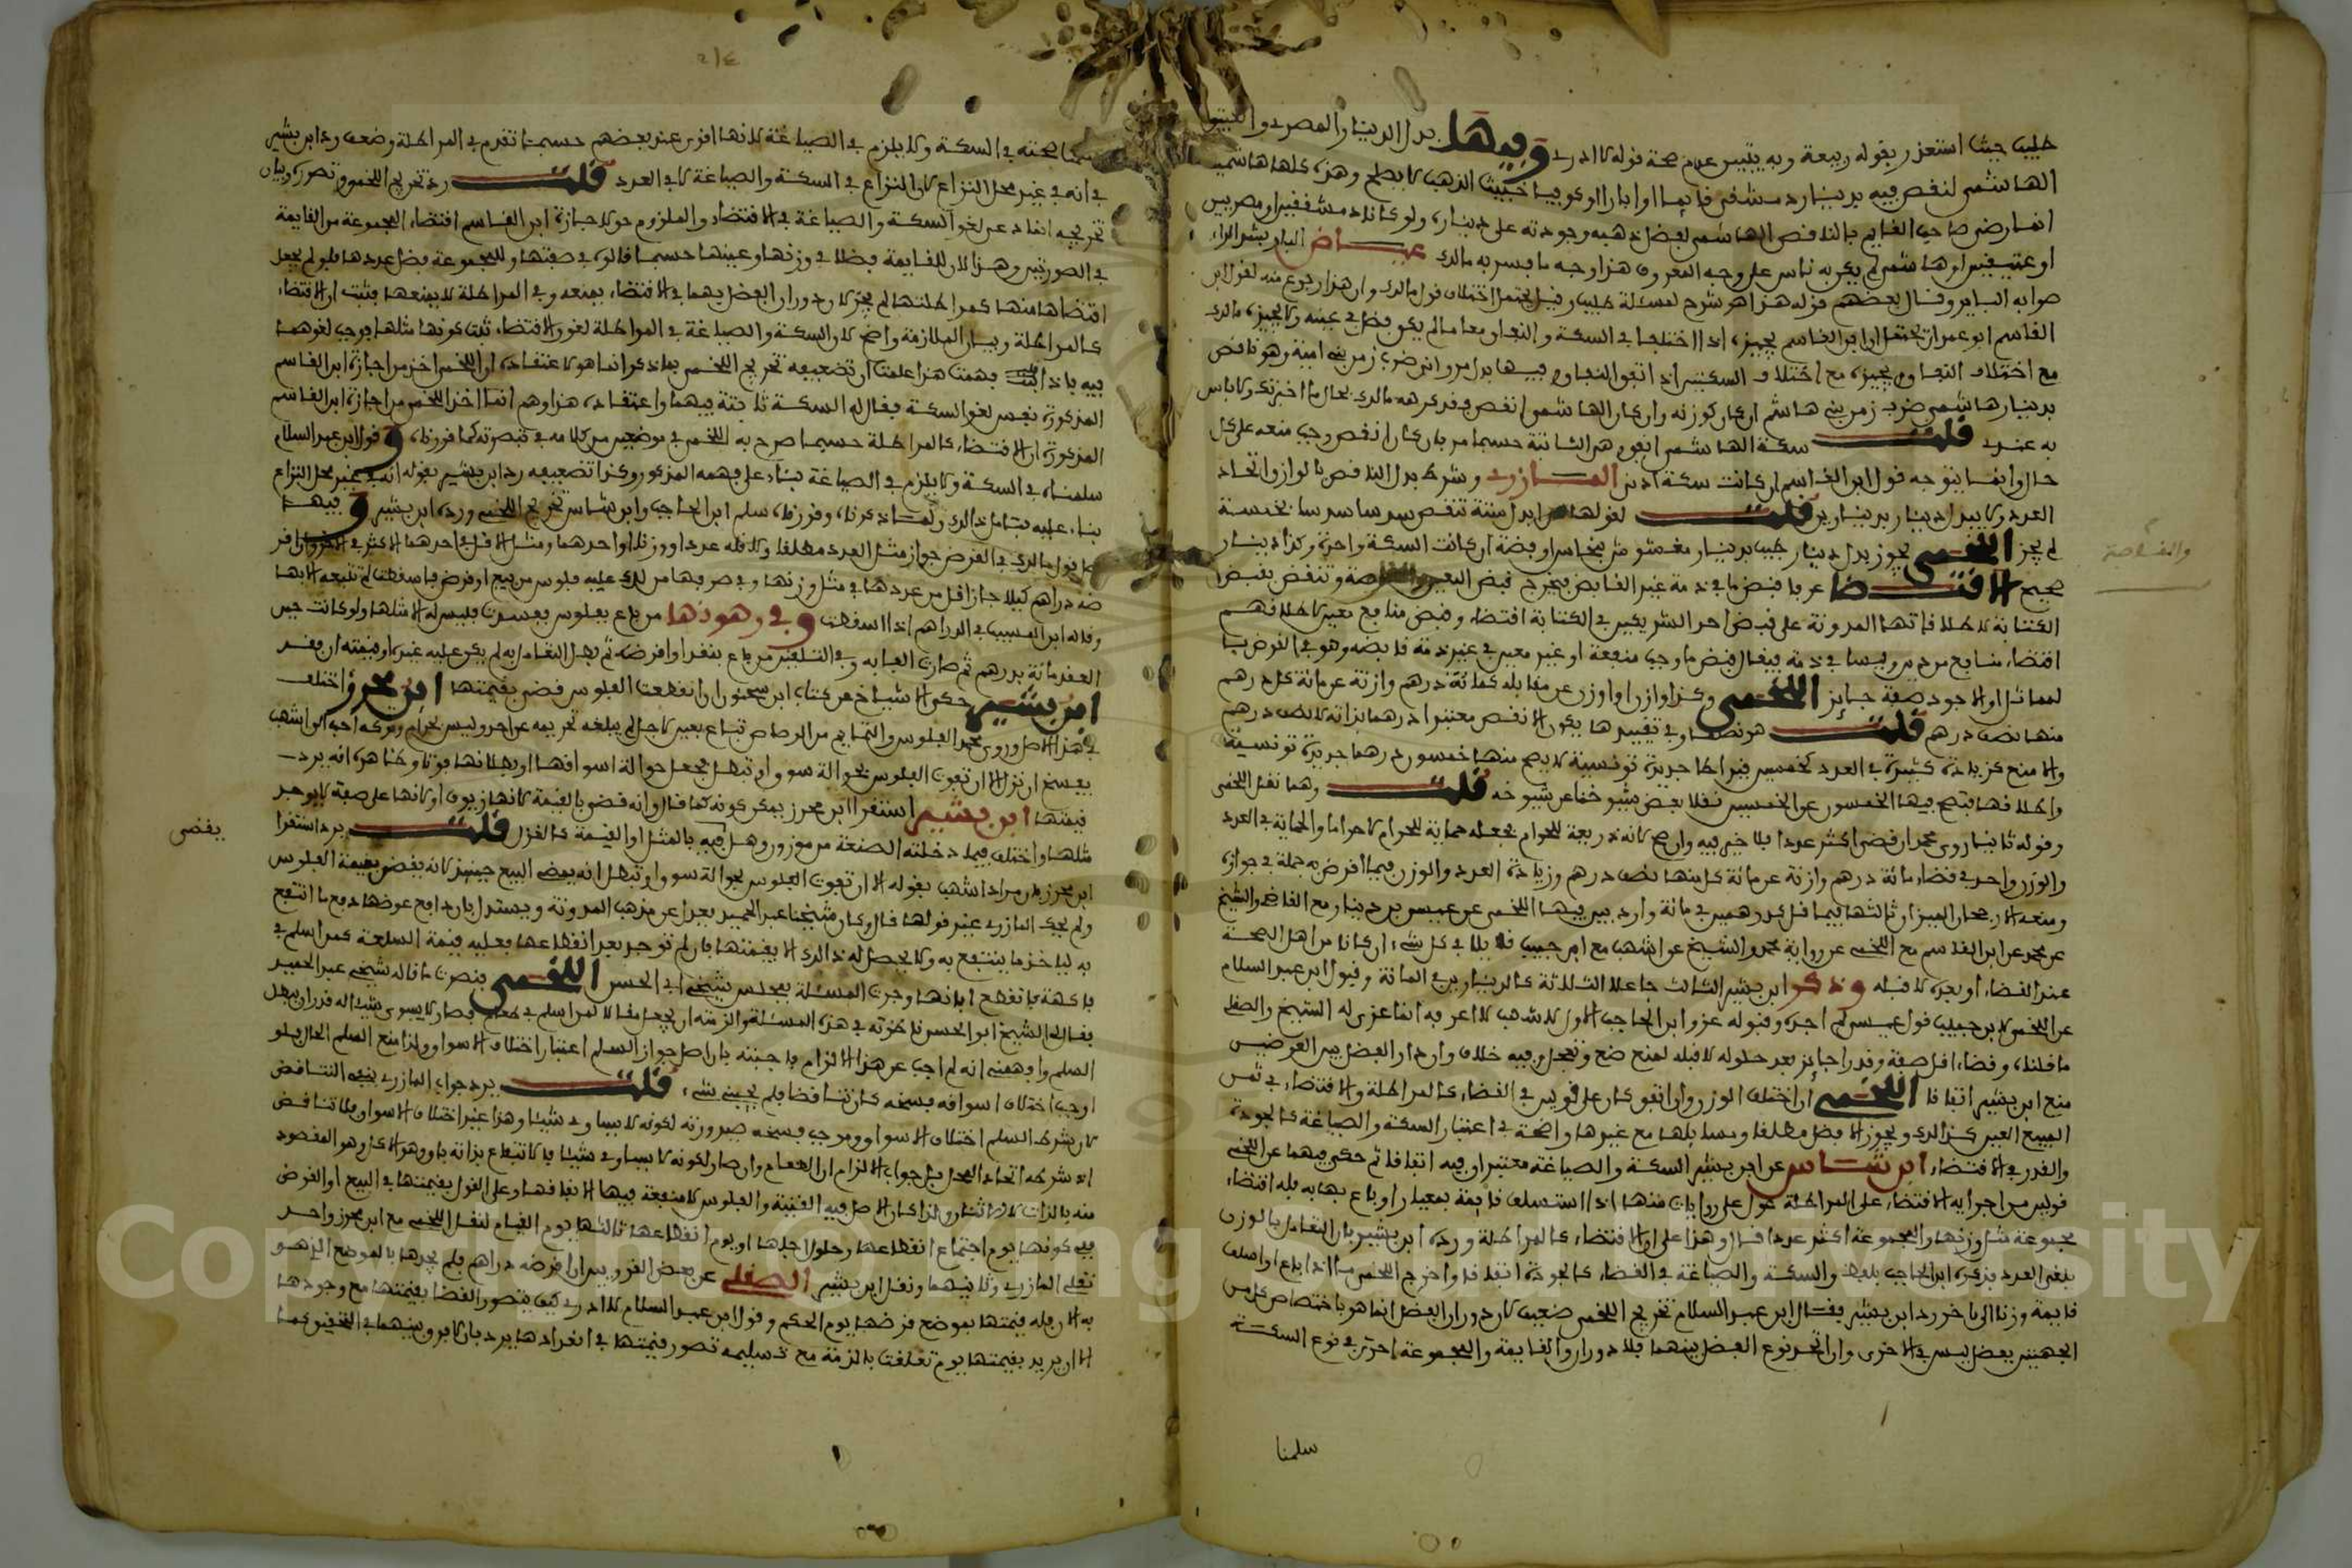 طيب حيث استعذر بقوله ربيعة وبه يتبين عدم صحة قوله لا ادري وفيها بدل الدينار المصري والعتيق
الهاشمي لنقص فيه بدينار دمشقي قايما او بارا او كوفيا خبيث الذهب لا يصلح وهذه كلها هاشمية
انما رضي صاحب القايم بالناقص الهاشمي لفضل ذهبه وجودته على ديناره ولو كانا دمشقيين او مصريين
او عتيقين او هاشميين لم يكن به باس على وجه المعروف هذا وجه ما فسر به مالك عياض
صوابه وقال بعضهم قوله هذا هو شرح لمسئلة طيب وقيل يحتمل اختلاف قول مالك وان هذا رجوع منه لقول ابن
القاسم ابو عمران يحتمل ان ابن القاسم يجيزه اذا اختلفا في السكة والنفاق معا ما لم يكن فضل في عينه ولا يجيزه مالك
مع اختلاف النفاق ويجيزه مع اختلاف السكتين اذا اتفق النفاق وفيها بدل مرواني ضرب زمن بني امية وهو ناقص
بدينار هاشمي ضرب زمن بني هاشم ان كان كوزنه وان كان الهاشمي انقص فقد كرهه مالك بحال ما اخبرتك ولا باس
به عندي قلت سكة الهاشمي انفق وهي الثانية حسبما مر بان كان انقص وجب منعه على كل
حال وانما يتوجه قول ابن القاسم ان كانت سكة ادنى المازري وشرط بدل الناقص بالوازن اتحاد
العدد ولا يبدل دينار بدينارين قلت لقولها من ابدل ستة تنقص سدسا سدسا بخمسة
لم يجز اللخمي يجوز بدل دينار طيب بدينار مغشوش بنحاس او فضة ان كانت السكة واحدة وكذا دينار
صحيح الاقتضا عرفا قبض ما في ذمة غير القابض فيخرج قبض المعين والمقاصة وتنقض بقبض
والمقاصة
الكتابة لاطلاقاتها المدونة على قبض احد الشريكين في الكتابة اقتضاء وقبض منافع معين لاطلاقهم
اقتضاء منافع من دين وليسا في ذمة فيقال قبض ما وجب منفعة او غير معين في غير ذمة قابضه وهو في القرض بما
لمماثل او الاجود صفة جايز اللخمي وكذا وازنا او اوزن عن مقابله كمائة درهم وازنة عن مائة كل درهم
منها نصف درهم قلت هو نصها وفي تقييدها بكون الانقص معتبرا درهما بذاته لا نصف درهم
والا منع كزيادة كثيرة في العدد كخمسين قيراطا جديدة تونسية لا يصح منها خمسون درهما جديدة تونسية
واطلاقها فتصح فيها الخمسون عن الخمسين نقلا بعض شيوخنا عن شيوخه قلت وهما نقل اللخمي
وقوله ثانيا روى محمد ان قضى اكثر عددا فلا خير فيه وان صح كانه ذريعة للحرام فجعله حماية للحرام لا حراما والحماية في العدد
والوزن واحد في قضاء مائة درهم وازنة عن مائة كل منها نصف درهم وزيادة العدد والوزن فيما اقرض به جملة في جوازه
ومنعه الا رجحان الميزان ثالثها فيما قل كدرهمين في مائة واردبين فيها اللخمي عن عيسى بن دينار مع القاضي والشيخ
عن محمد عن ابن القاسم مع اللخمي عن رواية محمد والشيخ عن اشهب مع ابن حبيب قايلا في كل شيء ان كانا من اهل الصحة
عند القضاء او بعده لا قبله وذكر ابن بشير الثالث جاعلا الثلاثة كالدينارين في المائة وقبول ابن عبد السلام
عن اللخمي لابن حبيب قول عيسى لم اجده وقبوله عزو ابن الحاجب الاول لاشهب لا اعرفه انما عزي له الشيخ والصقلي
ما قلناه وقضاء اقل صفة وقدرا جايز بعد حلوله لا قبله لمنع ضع وتعجل وفيه خلاف وان دار الفضل بين العوضين
منع ابن بشير اتفاقا اللخمي ان اختلف الوزن وان اتفق كان على قولين في القضاء كالمراطلة والاقتضاء في ثمن
المبيع العين كذلك ويجوز الافضل مطلقا ومسايلها مع غيرها واضحة في اعتبار السكة والصياغة كالجودة
والقدر في الاقتضاء ابن شاس عن ابن بشير السكة والصياغة معتبران فيه اتفاقا ثم حكى فيهما عن اللخمي
قولين من اجرايه الاقتضاء على المراطلة عول على روايات منها اذا استسلف قايمة بمعيار او باع بها به فله اقتضاء
مجموعة مثل وزنها والمجموعة اكثر عددا قال وهذا على ان الاقتضاء كالمراطلة ورده ابن بشير بان التعامل بالوزن
يلغي العدد بذكره ابن الحاجب بلفظ والسكة والصياغة في القضاء كالجودة اتفاقا واخرج اللخمي من اذا باع او اسلف
قايمة وزنا الى ما خر ورد ابن بشير فقال ابن عبد السلام تخريج اللخمي ضعيف لان دوران الفضل انما هو باختصاص كل من
الجهتين بفضل ليس في الاخرى وان اتحد نوع الفضل بينهما فلا دوران والقايمة والمجموعة احرى في نوع السكة
سلمنا
سلمنا صحته في السكة ولا يلزم في الصياغة لانها اقوى عند بعضهم حسبما تقدم في المراطلة وضعف رد ابن بشير
في انه في غير محل النزاع لان النزاع في السكة والصياغة لا في العدد قلت رد تخريج اللخمي وتصوره وبيان
تخريجه انفاد عن لغو السكة والصياغة في الاقتضاء والملزوم هو لاجازة ابن القاسم اقتضاء المجموعة من القايمة
في الصورتين وهذا لان للقايمة فضلا في وزنها وعينها حسبما قالوه في صفتها وللمجموعة فضل عددها فلو لم يجعل
اقتضاها منها كمراطلتها لم يجز لان دوران الفضل بينهما في الاقتضاء يمنعه وفي المراطلة لا يمنعها فثبت ان الاقتضاء
كالمراطلة وبيان الملازمة واضح لان السكة والصياغة في المراطلة لغو والاقتضاء ثبت كونها مثلها فوجب لغوهما
فيه فاذا فهمت هذا علمت ان تضعيفه تخريج اللخمي بما ذكر انما هو لاعتقاده ان اللخمي اخذ من اجازة ابن القاسم
المذكورة نفس لغو السكة فقال له السكة ثابتة فيهما واعتقاده هذا وهم انما اخذ اللخمي من اجازة ابن القاسم
المذكورة ان الاقتضاء كالمراطلة حسبما صرح به اللخمي في موضعين من كلامه في تبصرته كما قررناه وقول ابن عبد السلام
سلمناه في السكة ولا يلزم في الصياغة بناء على فهمه المذكور وكذا تضعيفه رد ابن بشير بقوله انه في غير محل النزاع
بناء عليه فتامل ذلك ولما ذكرناه وقررناه سلم ابن الحاجب وابن شاس تخريج اللخمي ورده ابن بشير وفيها
ما قول مالك في القرض جواز مثل العدد مطلقا ولا قله عددا ووزنا او احدهما ومثل الاقل في احدهما الاكثر في الاخر وان اقر
ضه دراهم كيلا جاز اقل من عددها في مثل وزنها وفي صرفها من لك عليه فلوس من بيع او قرض فاسقطت لم تتبعه الا بها
وقاله ابن المسيب في الدراهم اذا اسقطت وفي رهونها من باع بفلوس ففسدت فليس له الا مثلها ولو كانت حين
العقد مائة بدرهم ثم صارت الفا به وفي التلقين من باع بنقد او اقرضه ثم بطل التعامل به لم يكن عليه غيره او قيمته ان فقد
ابن بشير حكى الاشياخ عن كتاب ابن سحنون ان انقطعت الفلوس قضي بقيمتها ابن محرز اختلف
في هذا الاصل وروى محمد الفلوس والتمايم من الرصاص تباع بعين لاجل لم يبلغه تحريمه عن احد وليس بحرام وتركه احب الي اشهب
يفسخ ان نزل الا ان تفوت الفلوس بحوالة سوق او تبطل فجعل حوالة اسواقها او بطلانها فوتا وظاهره انه يرد
قيمتها ابن بشير استقرا ابن محرز يمكن كونه كما قال وانه قضي بالقيمة لانها زيوف او كانها على صفة لا يوجد
مثلها واختلف فيما دخلته الصنعة من موزون وهل فيه بالمثل او القيمة كالغزل قلت يرد استقرا
يقضى
ابن محرز بان مراد اشهب بقوله الا ان تفوت الفلوس بحوالة سوق او تبطل انه يمضي البيع حينئذ لانه يقضي بقيمة الفلوس
ولم يحك المازري غير قولها قال وكان شيخنا عبد الحميد يعدل عن مذهب المدونة ويستدل بان دافع عوضها دفع ما انتفع
به لياخذ ما ينتفع به ولا يحصل له ذلك الا بقيمتها فان لم توجد بعد انقطاعها فعليه قيمة السلعة كمن اسلم في
فاكهة فانقطع ابانها وجرت المسئلة بمجلس شيخي ابي الحسن اللخمي فنصرت ما قاله شيخي عبد الحميد
فقال لي الشيخ ابو الحسن ناظرته في هذه المسئلة والزمته ان يجعل مقالا لمن اسلم في طعام فصار لا يسوى شيئا له قدر ان يبطل
السلم وافهمني انه لم اجب عن هذا الالزام فاجبته بان اصل جواز السلم اعتبار اختلاف الاسواق ولذا منع السلم الحال فلو
اوجب اختلاف اسواقه فسخه كان تناقضا فلم يجبني بشيء قلت يرد جواب المازري بنفي التناقض
لان شرط السلم اختلاف الاسواق وموجب فسخه صيرورته لكونه لا يساوي شيئا وهذا غير اختلاف الاسواق فلا تناقض
اذ شرطه اتحاد المحل قيل جواب الالزام ان الطعام وان صار لكونه لا يساوي شيئا فلا انتفاع بذاته باق وهو الاكل وهو المقصود
منه بالذات لا الاثمان ولذا كان الاصل فيه القنية والفلوس لا منفعة فيها الا نفاقها وعلى القول بقيمتها في البيع او القرض
ففي كونها يوم اجتماع انقطاعها وحلول اجلها او يوم انقطاعها ثالثها يوم القيام لنقل اللخمي مع ابن محرز واحد
نقلي المازري وثانيهما ونقل ابن بشير الصقلي عن بعض القرويين ان اقرضه دراهم فلم يجدها بالموضع الذي هو
به الان فله قيمتها بموضع قرضها يوم الحكم وقول ابن عبد السلام لا ادري كيف يتصور القضا بقيمتها مع وجودها
الا ان يريد بقيمتها يوم تعلقت بالذمة مع تسليمه تصور قيمتها في انفرادها يرد بان لا فرق بينهما في التحقيق كما